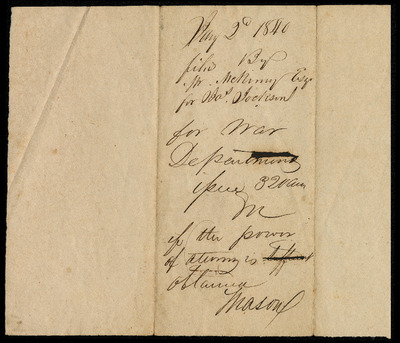 May 2d 1840
filed By
Mr. McKinny Esqr
for
Jackson
for War
Department
issue 320 acres
if the power
of attorney is
obtained
Mason